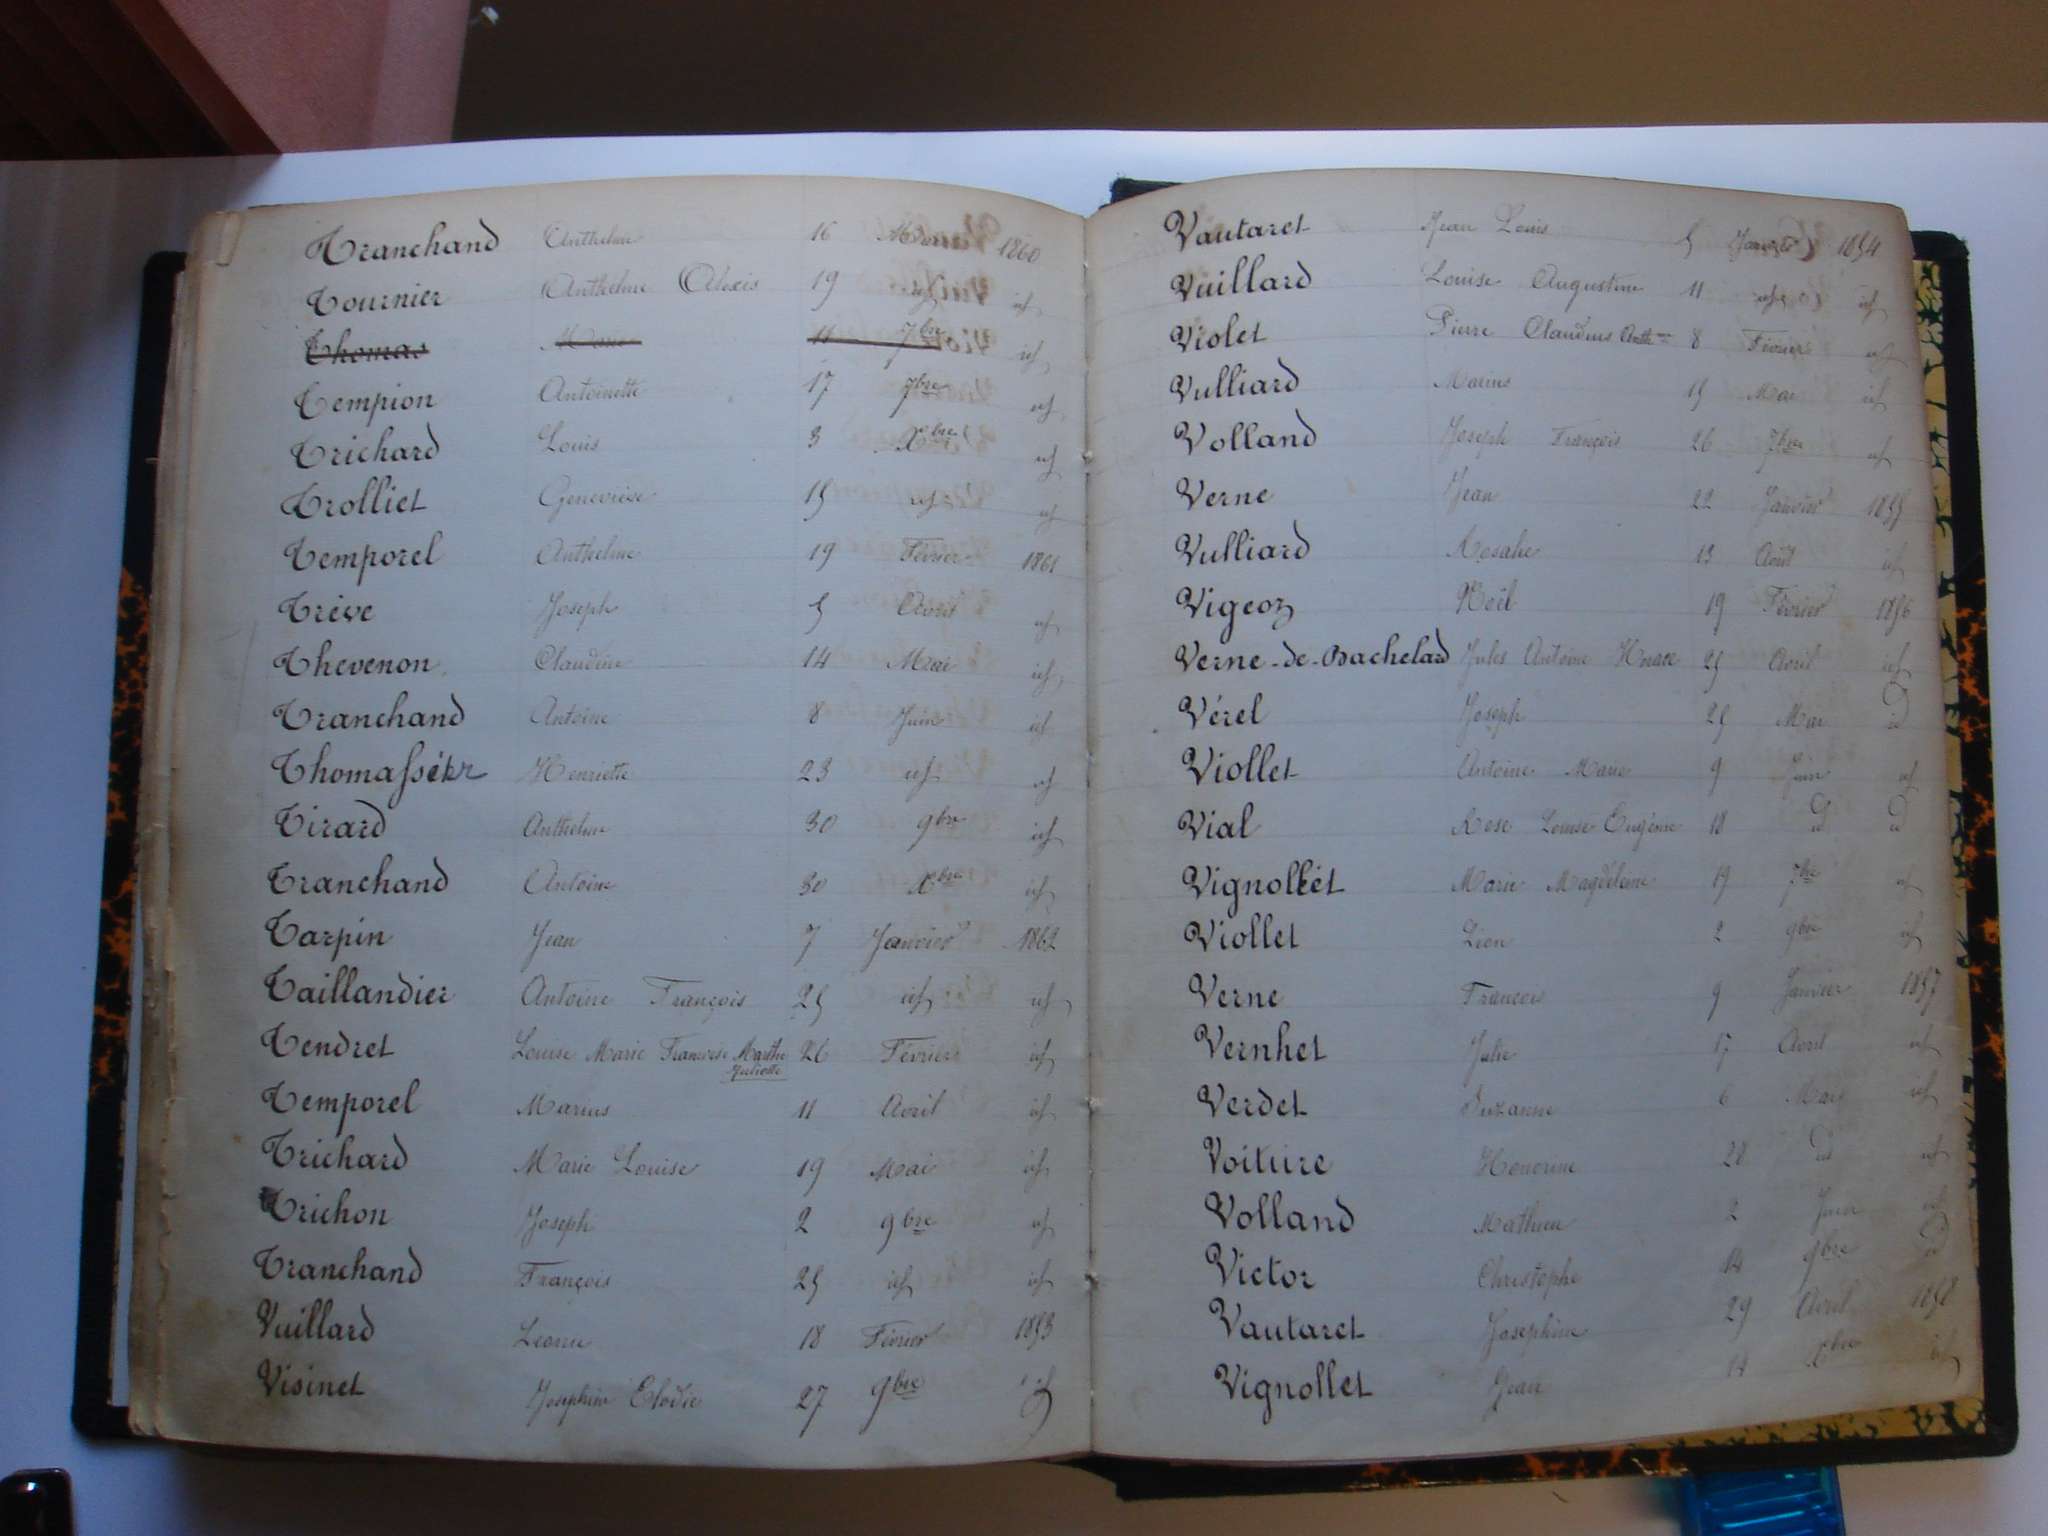 Tranchand Anthelme 16 Mai 1860
Tournier Anthelme Alexis 19 id id
Thomas Marie 11 7bre id
Tempion Antoinette 17 7bre id
Trichard Louis 3 Xbre id
Trolliet Geneviève 15 id id
Temporel Anthelme 19 Février 1861
Trève Joseph 5 Avril id
Thevenon Claudine 14 Mai id
Tranchand Antoine 8 Juin id
Henriette 23 id id
Tirard Anthelme 30 9bre id
Tranchand Antoine 30 Xbre id
Tarpin Jean 7 Janvier 1862
Taillandier Antoine François 25 id id
Tendret Louise Marie Françoise Marthe 26 Février id
Juliette
Temporel Marius 11 Avril id
Trichard Marie Louise 19 Mai id
Trichon Joseph 2 9bre id
Tranchand François 25 id id
Vuillard Leonie 18 Février 1853
Visinet Josephine Elodie 27 9bre id
Vautaret Jean Louis 5 Janvier 1854
Vuillard Louise Augustine 11 id id
Violet Pierre Claudius Anthme 8 Février id
Vulliard Marius 15 Mai id
Volland Joseph François 26 7bre id
Verne Jean 22 Janvier 1855
Vulliard Rosalie 13 Août id
Vigeoz Noël 19 Février 1856
Verne-de-Bachelard Jules Antoine Horace 25 Avril id
Vérel Joseph 25 Mai id
Viollet Antoine Marie 9 Juin id
Vial Rose Louise Eugénie 18 id id
Vignollet Marie Magdeleine 19 7bre id
Viollet 2 9bre id
Verne François 9 Janvier 1857
Vernhet Julie 17 Avril id
Verdet Suzanne 6 Mai id
Voiture Honorine 28 id id
Volland Mathieu 2 Juin id
Victor Christophe 14 9bre id
Vautaret Josephine 29 Avril 1858
Vignollet Jean 14 Xbre id